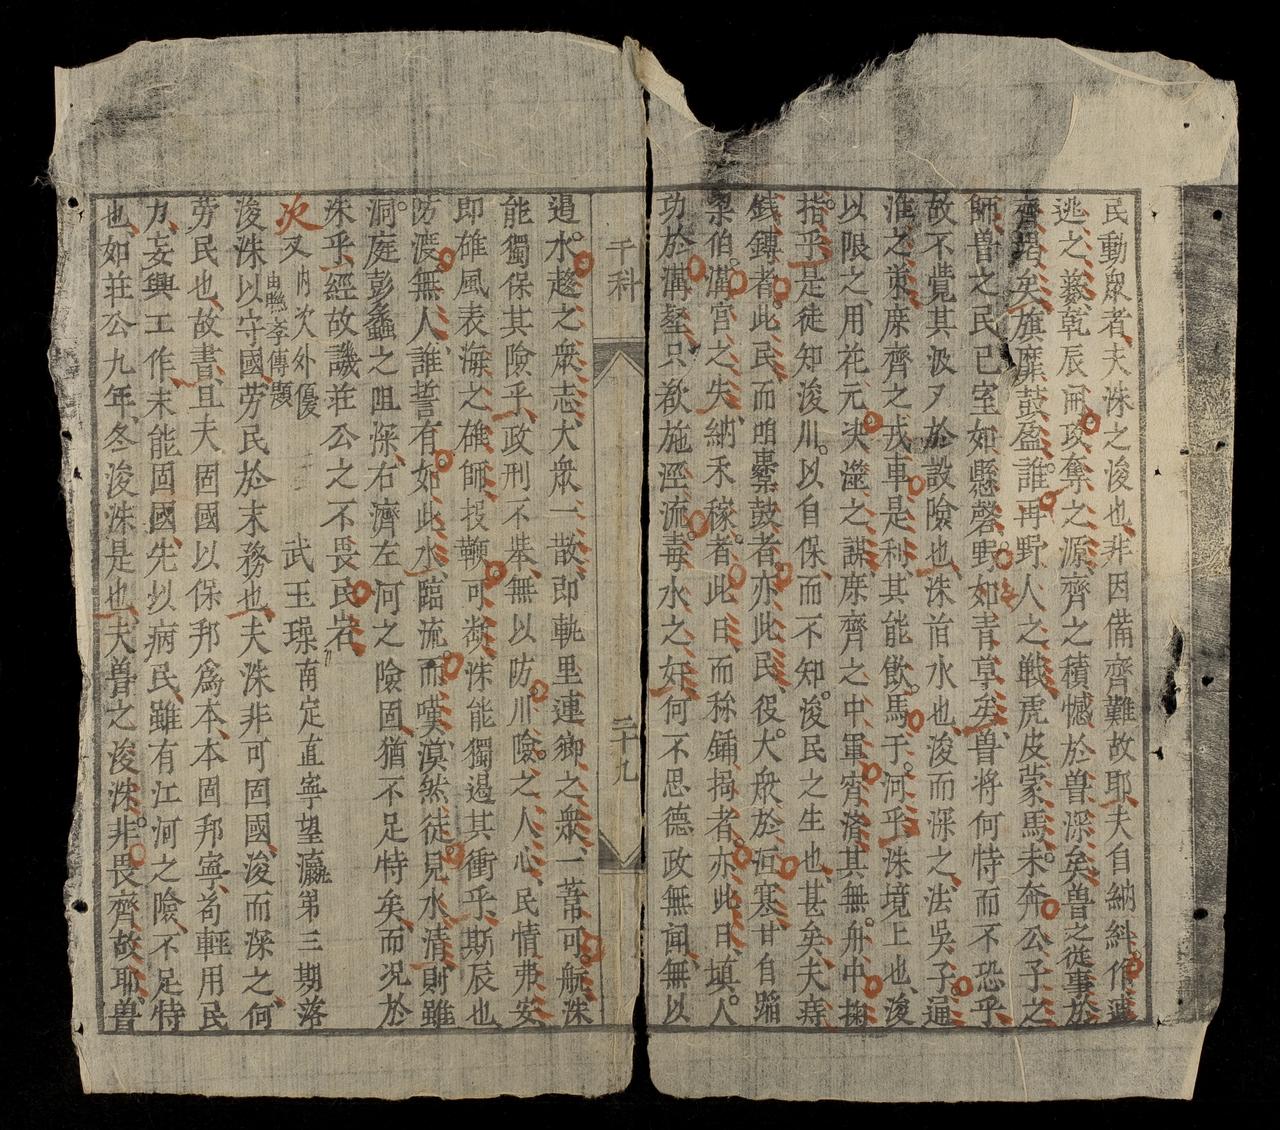 民動衆者夫洙之浚也非因備齊難故耶夫自納糾作
逃之乾辰而攻奪之源齊之積憾於魯深矣魯之從事於
齊矣旗靡鼓盈誰再野人之戰虎皮蒙馬未奔公子之
師魯之民已室如懸磬野如青草矣魯將何恃而不恐乎
故不覺其汲又於設險也洙首水也浚而深之法吳子通
淮之策庶齊之戎車是利其能飲馬于河乎洙境上也浚
以限之用花元决之謀庶齊之中軍宵濟其無舟中掬
指乎是徒知浚川以自保而不知浚民之生也甚矣夫
錢鎛者此民而鼓者亦此民役大衆於塞甘自蹈
梁伯溝宮之失納禾稼者此日而称鍤者亦此日填人
功於溝壑只欲施涇流毒水之奸何不思德政無聞無以
千科
二十九
過水之衆志大衆一散即軌里連鄉之衆一葦可航洙
能獨保其險乎政刑不舉無以防川險之人心民情弗安
即雄風表海之雄師投鞭可洙能獨遏其衝乎斯辰也
防渡無人誰誓有如此水臨流而嘆漠然徒見水清則雖
洞庭彭蠡之阻深右濟左河之險固猶不足恃矣而况於
洙乎經故譏莊公之不畏民岩
次
又內次外優
由孝傳題
武王璪南定直寧望瀛第三期落
浚洙以守國勞民於末務也夫洙非可固國浚而深之何
勞民也故書且夫固國以保邦爲本本固邦寧苟輕用民
力妄興工作未能固國先以病民雖有江河之險不足恃
也如莊公九年冬浚洙是也夫魯之浚洙非畏齊故耶魯